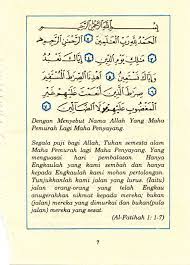 بِسْمِ اللَّهِ الرَّحْمَٰنِ الرَّحِيمِ
الْحَمْدُ لِلَّهِ رَبِّ الْعَٰلَمِينَ الرَّحْمَٰنِ الرَّحِيمِ
مَٰلِكِ يَوْمِ الدِّينِ إِيَّاكَ نَعْبُدُ
وَإِيَّاكَ نَسْتَعِينُ اهْدِنَا الصِّرَاطَ الْمُسْتَقِيمَ
صِرَاطَ الَّذِينَ أَنْعَمْتَ عَلَيْهِمْ غَيْرِ
الْمَغْضُوبِ عَلَيْهِمْ وَلَا الضَّالِّينَ
Dengan Menyebut Nama Allah Yang Maha
Pemurah Lagi Maha Penyayang.
Segala puji bagi Allah, Tuhan semesta alam
Maha Pemurah Lagi Maha Penyayang. Yang
menguasai hari pembalasan. Hanya
Engkaulah yang kami sembah dan hanya
kepada Engkaulah kami mohon pertolongan.
Tunjukkanlah kami jalan yang lurus (iaitu)
jalan orang-orang yang telah Engkau
anugerahkan nikmat kepada mereka; bukan
(jalan) mereka yang dimurkai dan bukan(pula
jalan) mereka yang sesat.
(Al-Fatihah 1: 1-7)
7